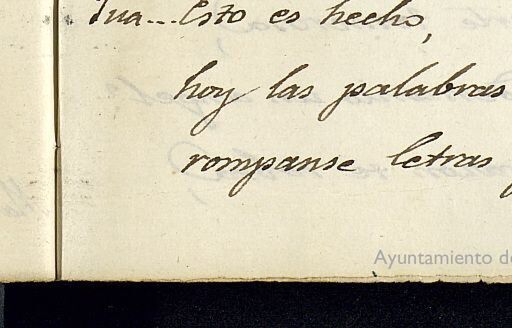 Jua... Esto es hecho,
hoy las palabras
rompanse letras
Ayuntamiento de